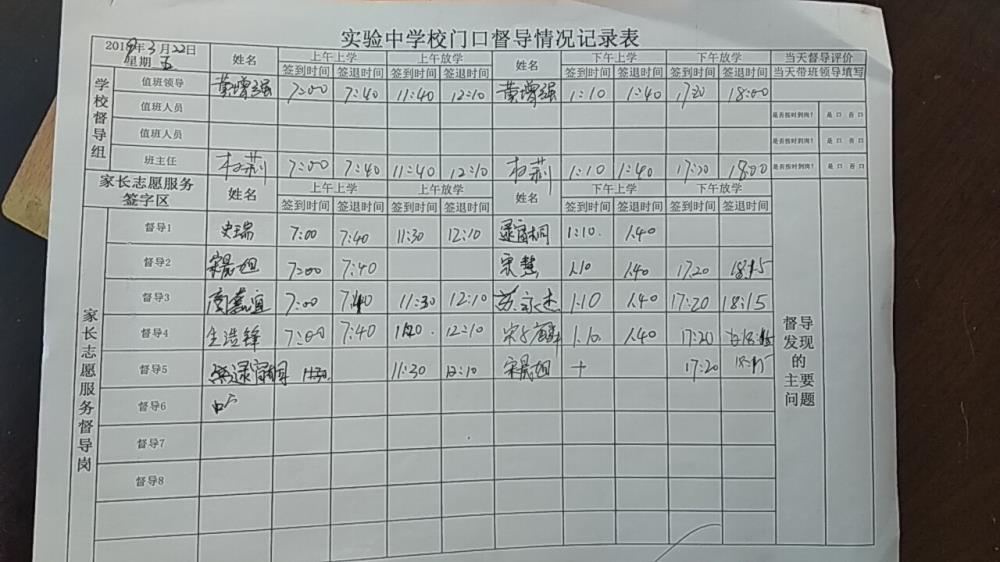 实验中学校门口督导情况记录表
2019年3月22日 星期五 姓名 上午上学 上午放学 姓名 下午上学 下午放学 当天督导评价
签到时间 签退时间 签到时间 签退时间 签到时间 签退时间 签到时间 签退时间 当天带班领导填写
学校督导组
值班领导 黄增强 7:00 7:40 11:40 12:10 黄增强 1:10 1:40 17:20 18:00
值班人员 是否按时到岗? 是 口 否 口
值班人员 是否按时到岗? 是 口 否 口
班主任 7:00 7:40 11:40 12:10 1:10 1:40 17:20 18:00 是否按时到岗? 是 口 否 口
家长志愿服务签字区 姓名 上午上学 上午放学 姓名 下午上学 下午放学
签到时间 签退时间 签到时间 签退时间 签到时间 签退时间 签到时间 签退时间
家长志愿服务督导岗
督导1 史瑞 7:00 7:40 11:30 12:10 1:10. 1.40
督导2 7:00 7:40 宋慧 1.10 1.40 17.20 18:15
督导3 7:00 7:40 11:30 12:10 苏永杰 1.10 1.40 17:20 18:15
督导4 7:00 7:40 12:10 1.10. 1.40 17:20
督导5 11:30 12:10 17:20
督导6
督导7
督导8
督导发现的主要问题